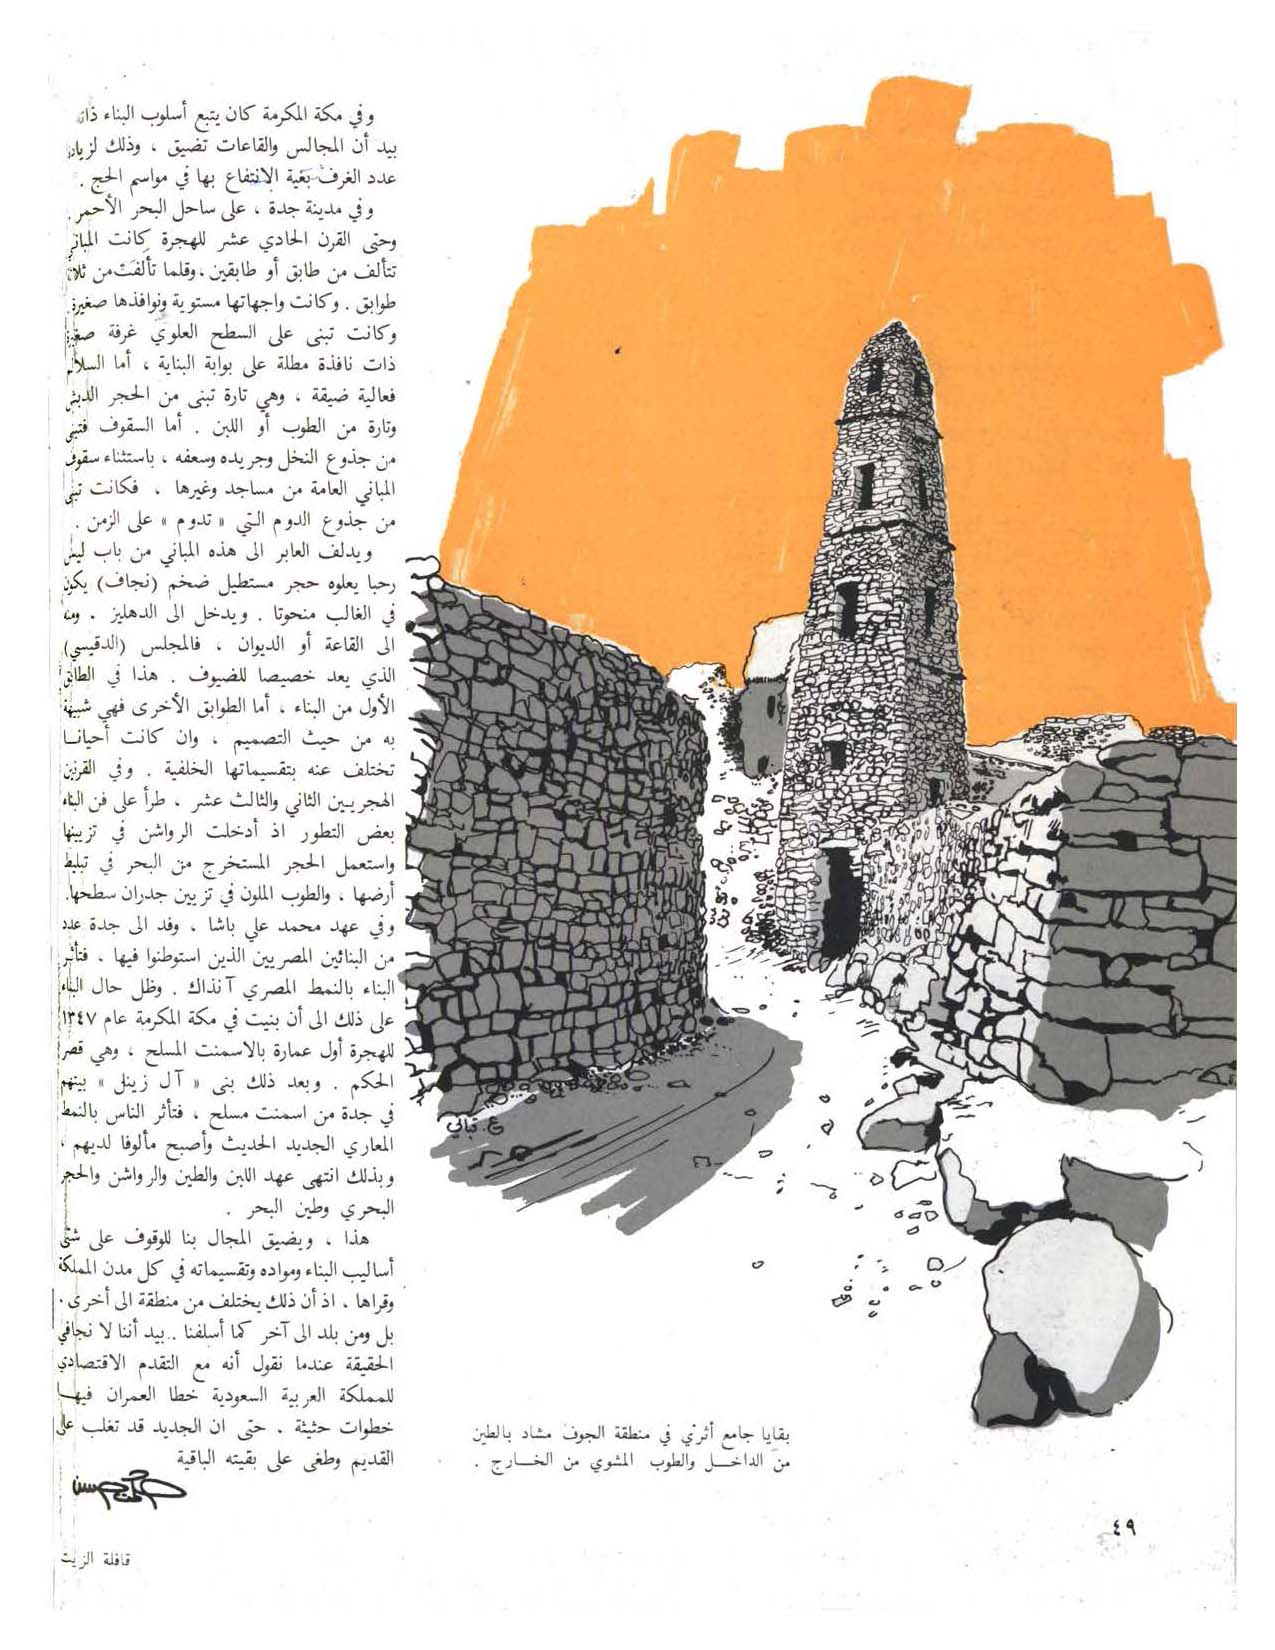 وفي مكة المكرمة كان يتبع أسلوب البناء ذاته
بيد أن المجالس والقاعات تضيق ، وذلك لزيادة
عدد الغرف بغية الانتفاع بها في مواسم الحج .
وفي مدينة جدة ، على ساحل البحر الأحمر .
وحتى القرن الحادي عشر للهجرة كانت المباني
تتألف من طابق أو طابقين ، وقلما تألفت من ثلاثة
طوابق . وكانت واجهاتها مستوية ونوافذها صغيرة .
وكانت تبنى على السطح العلوي غرفة صغيرة
ذات نافذة مطلة على بوابة البناية ، أما السلالم
فعالية ضيقة ، وهي تارة تبنى من الحجر الدبش
وتارة من الطوب أو اللبن . أما السقوف فتبنى
من جذوع النخل وجريده وسعفه ، باستثناء سقوف
المباني العامة من مساجد وغيرها ، فكانت تبنى
من جذوع الدوم التي « تدوم » على الزمن .
ويدلف العابر الى هذه المباني من باب ليس
رحبا يعلوه حجر مستطيل ضخم (نجاف) يكون
في الغالب منحوتا . ويدخل الى الدهليز . ومنه
الى القاعة أو الديوان ، فالمجلس (الدقيسي)
الذي يعد خصيصا للضيوف . هذا في الطابق
الأول من البناء ، أما الطوابق الأخرى فهي شبيهة
به من حيث التصميم ، وان كانت أحيانـا
تختلف عنه بتقسيماتها الخلفية . وفي القرنين
الهجريـين الثاني والثالث عشر ، طرأ على فن البناء
بعض التطور اذ أدخلت الرواشن في تزيينها
واستعمل الحجر المستخرج من البحر في تبليط
أرضها ، والطوب الملون في تزيين جدران سطحها.
وفي عهد محمد علي باشا ، وفد الى جدة عدد
من البنائين المصريين الذين استوطنوا فيها ، فتأثر
البناء بالنمط المصري آنذاك . وظل حال البناء
على ذلك الى أن بنيت في مكة المكرمة عام ١٣٤٧
للهجرة أول عمارة بالاسمنت المسلح ، وهي قصر
الحكم . وبعد ذلك بنى « آل زينل » بيتهم
في جدة من اسمنت مسلح ، فتأثر الناس بالنمط
المعاري الجديد الحديث وأصبح مألوفا لديهم ،
وبذلك انتهى عهد اللبن والطين والرواشن والحجر
البحري وطين البحر .
هذا ، ويضيق المجال بنا للوقوف على شتى
أساليب البناء ومواده وتقسيماته في كل مدن المملكة
وقراها ، اذ أن ذلك يختلف من منطقة الى أخرى .
بل ومن بلد الى آخر كما أسلفنا .. بيد أننا لا نجافي
الحقيقة عندما نقول أنه مع التقدم الاقتصادي
للمملكة العربية السعودية خطا العمران فيهـا
خطوات حثيثة . حتى ان الجديد قد تغلب على
القديم وطغى على بقيته الباقية
ع. قباني
بقايا جامع أثري في منطقة الجوف مشاد بالطين
من الداخـل والطوب المشوي من الخـارج .
٤٩
قافلة الزيت